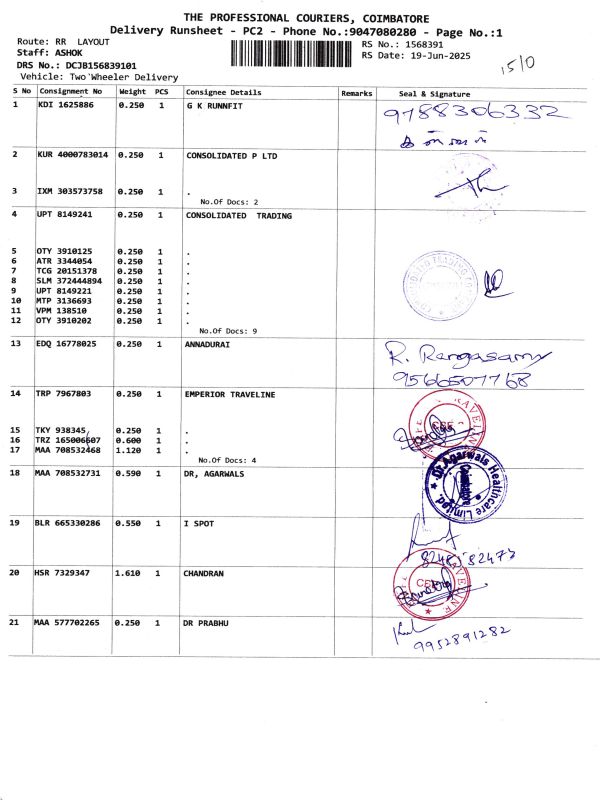 THE PROFESSIONAL COURIERS, COIMBATORE
Delivery Runsheet - PC2 - Phone No.:9047080280 - Page No.:1
Route: RR LAYOUT
RS No.: 1568391
Staff: ASHOK
RS Date: 19-Jun-2025
DRS No.: DCJB156839101
Vehicle: Two Wheeler Delivery
S No Consignment No Weight PCS Consignee Details Remarks Seal & Signature
1 KDI 1625886 0.250 1 G K RUNNFIT 9788306332
2 KUR 4000783014 0.250 1 CONSOLIDATED P LTD
3 IXM 303573758 0.250 1 .
No.Of Docs: 2
4 UPT 8149241 0.250 1 CONSOLIDATED TRADING
5 OTY 3910125 0.250 1 .
6 ATR 3344054 0.250 1 .
7 TCG 20151378 0.250 1 .
8 SLM 372444894 0.250 1 .
9 UPT 8149221 0.250 1 .
10 MTP 3136693 0.250 1 .
11 VPM 138510 0.250 1 .
12 OTY 3910202 0.250 1 .
No.Of Docs: 9
13 EDQ 16778025 0.250 1 ANNADURAI R. Rangasamy
9566507768
14 TRP 7967803 0.250 1 EMPERIOR TRAVELINE
15 TKY 938345 0.250 1 .
16 TRZ 165006607 0.600 1 .
17 MAA 708532468 1.120 1 .
No.Of Docs: 4
18 MAA 708532731 0.590 1 DR, AGARWALS
Dr.Agarwals Healthcare Limited.
Coimbatore
19 BLR 665330286 0.550 1 I SPOT
20 HSR 7329347 1.610 1 CHANDRAN
21 MAA 577702265 0.250 1 DR PRABHU
9952891282